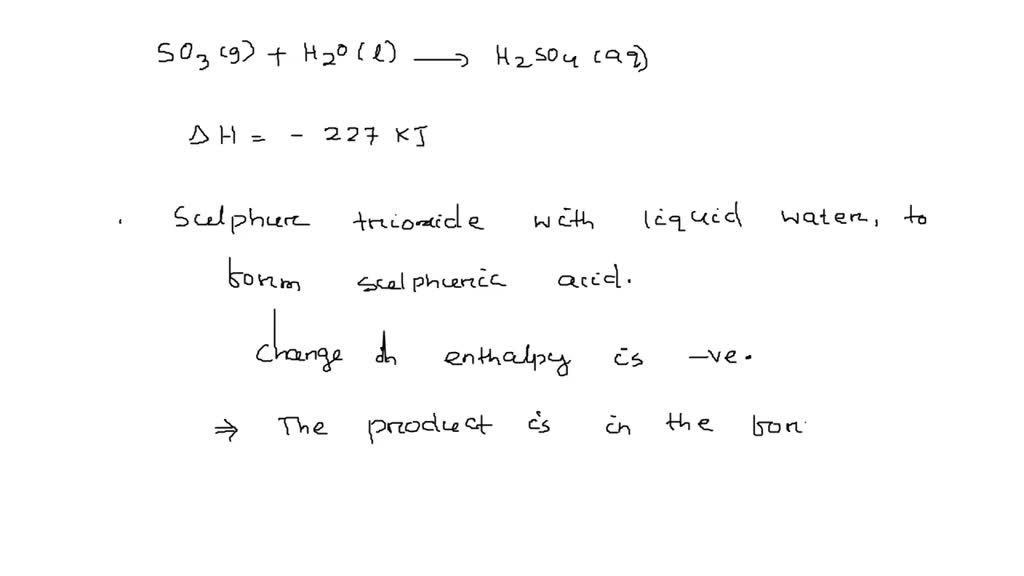 SO3(g) + H2O(l) ⟶ H2SO4(aq)
ΔH = - 227 KJ
. Sulphur trioxide with liquid water, to
form sulphuric acid.
Change in enthalpy is -ve.
⇒ The product is in the for